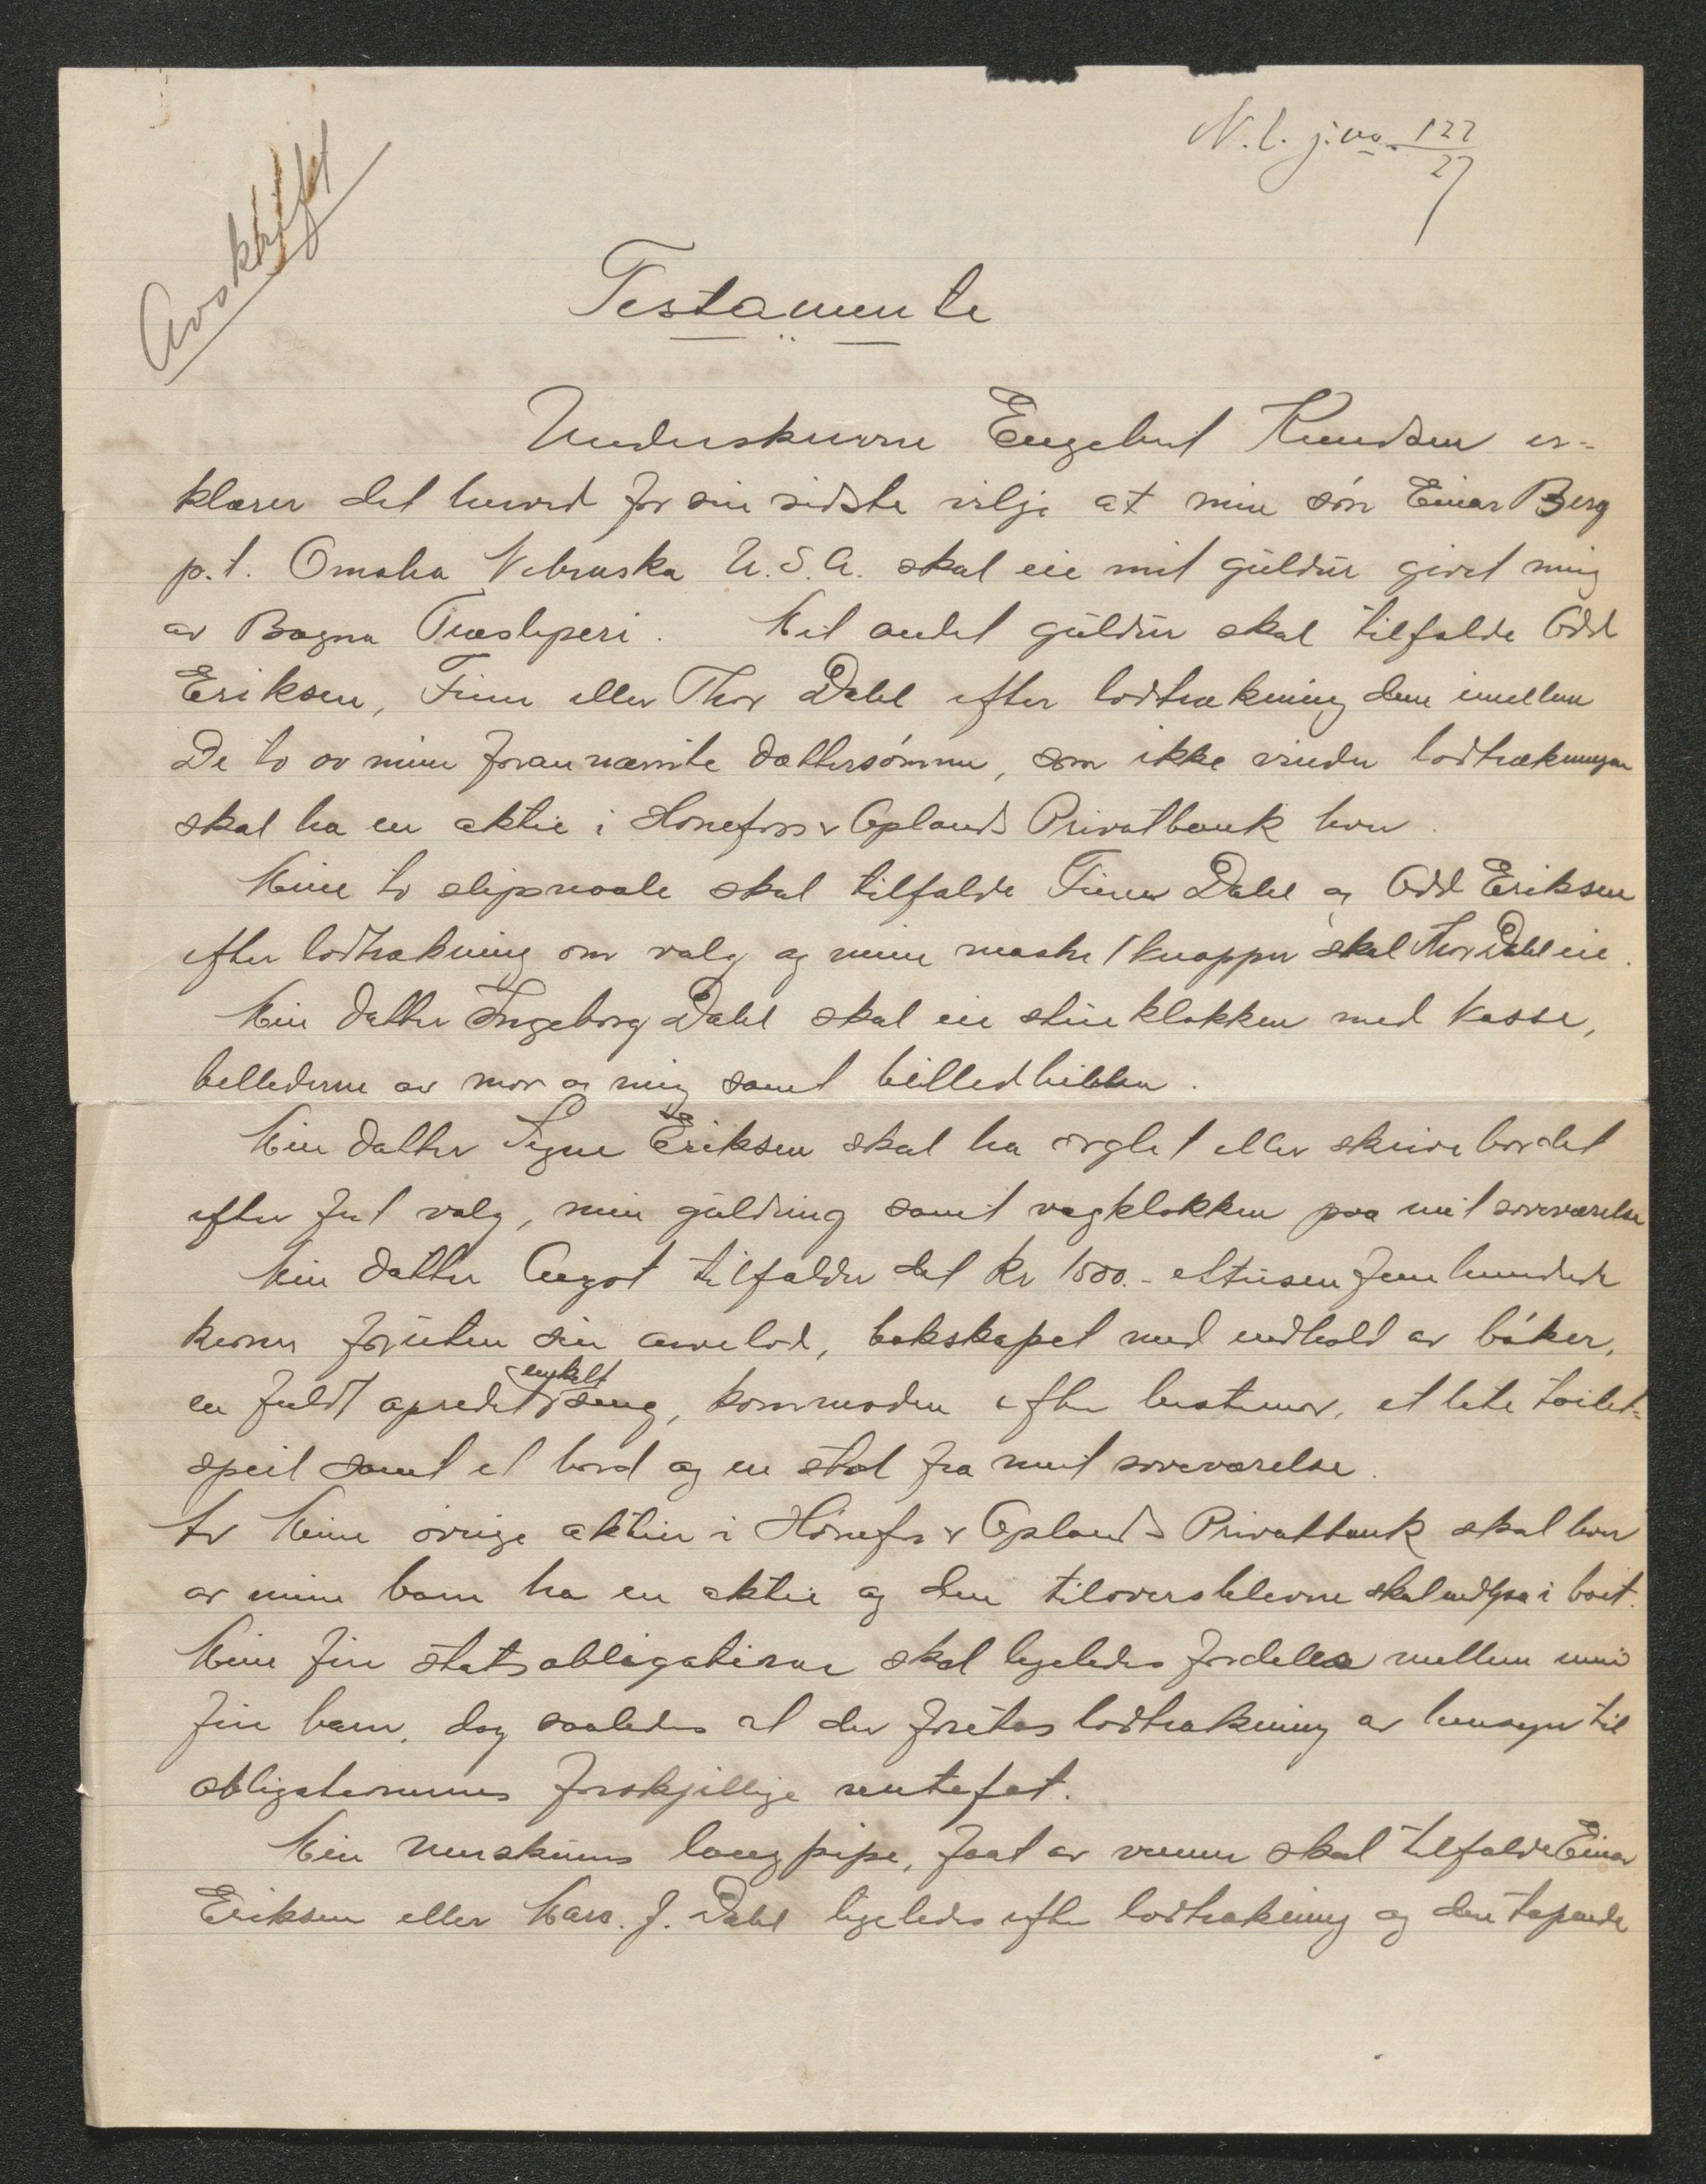 N.l. j.no. 122/27
Avskrift
Testamente
Underskrevne Engebret Knudsen er-
klærer det herved for sin sidste vilje at min søn Einar Berg
p.t. Omaha Nebraska U.S.A. skal eie mit guldur givet mig
av Bagna Træsliperi. Mit andet guldur skal tilfalde Odd
Eriksen, Finn eller Thor Dahl efter lodtrækning dem imellem
De to av mine forannævnte dattersønner, som ikke vinder lodtrækningen
skal ha en aktie i Hønefoss & Oplands Privatbank hver.
Mine to slipsnaale skal tilfalde Finn Dahl og Odd Eriksen
efter lodtrækning om valg og mine manchetknapper skal Thor Dahl eie.
Min datter Ingeborg Dahl skal eie stueklokken med kasse,
billederne av mor og mig samt billedbibelen.
Min datter Signe Eriksen skal ha orglet eller skrivebordet
efter frit valg, min guldring samt vægklokken paa mit soveværelse
Min datter Aagot tilfalder det kr 1500.- ettusen fem hundrede
kroner foruten sin arvelod, bokskapet med indhold av bøker,
en fuldt opredet enkelt seng, kommoden efter bestemor, et lite toilet-
speil samt et bord og en stol fra mit soveværelse.
Av Mine øvrige aktier i Hønefos & Oplands Privatbank skal hver
av mine barn ha en aktie og den tiloversblevne skal indgaa i boet.
Mine fire statsobligationer skal ligeledes fordeles mellem mine
fire barn, dog saaledes at der foretas lodtrækning av hensyn til
obligationernes forskjellige rentefot.
Min merskums langpipe, faat av venner skal tilfalde Einar
Eriksen eller Hans. J. Dahl ligeledes efter lodtrækning og den tapende